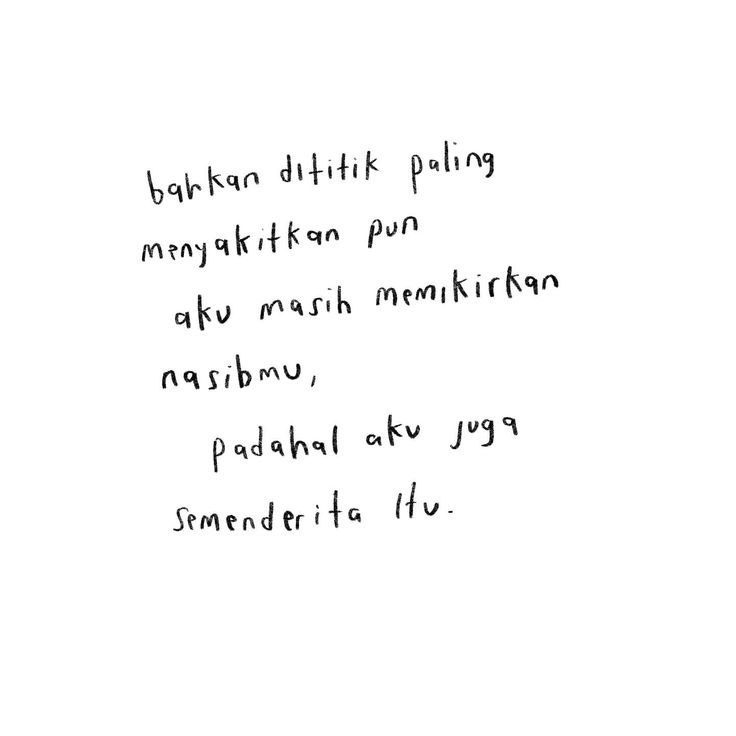 bahkan dititik paling
menyakitkan pun
aku masih memikirkan
nasibmu,
padahal aku juga
semenderita itu.